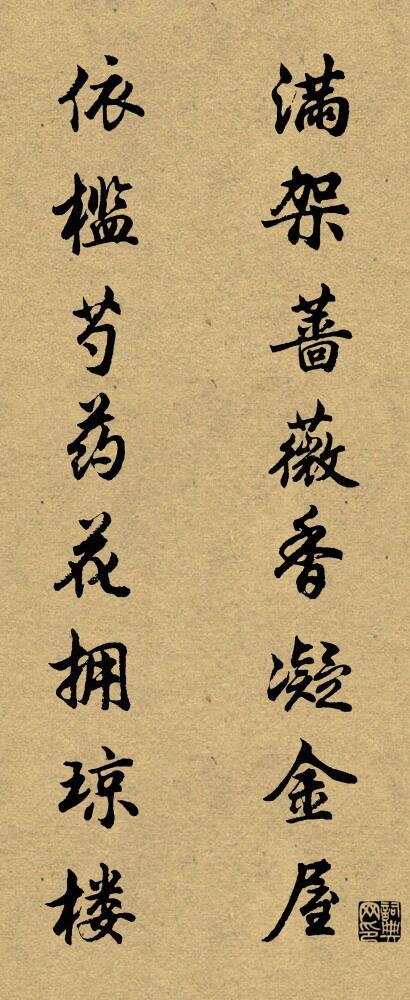 满架蔷薇香凝金屋
依槛芍药花拥琼楼
词典网印